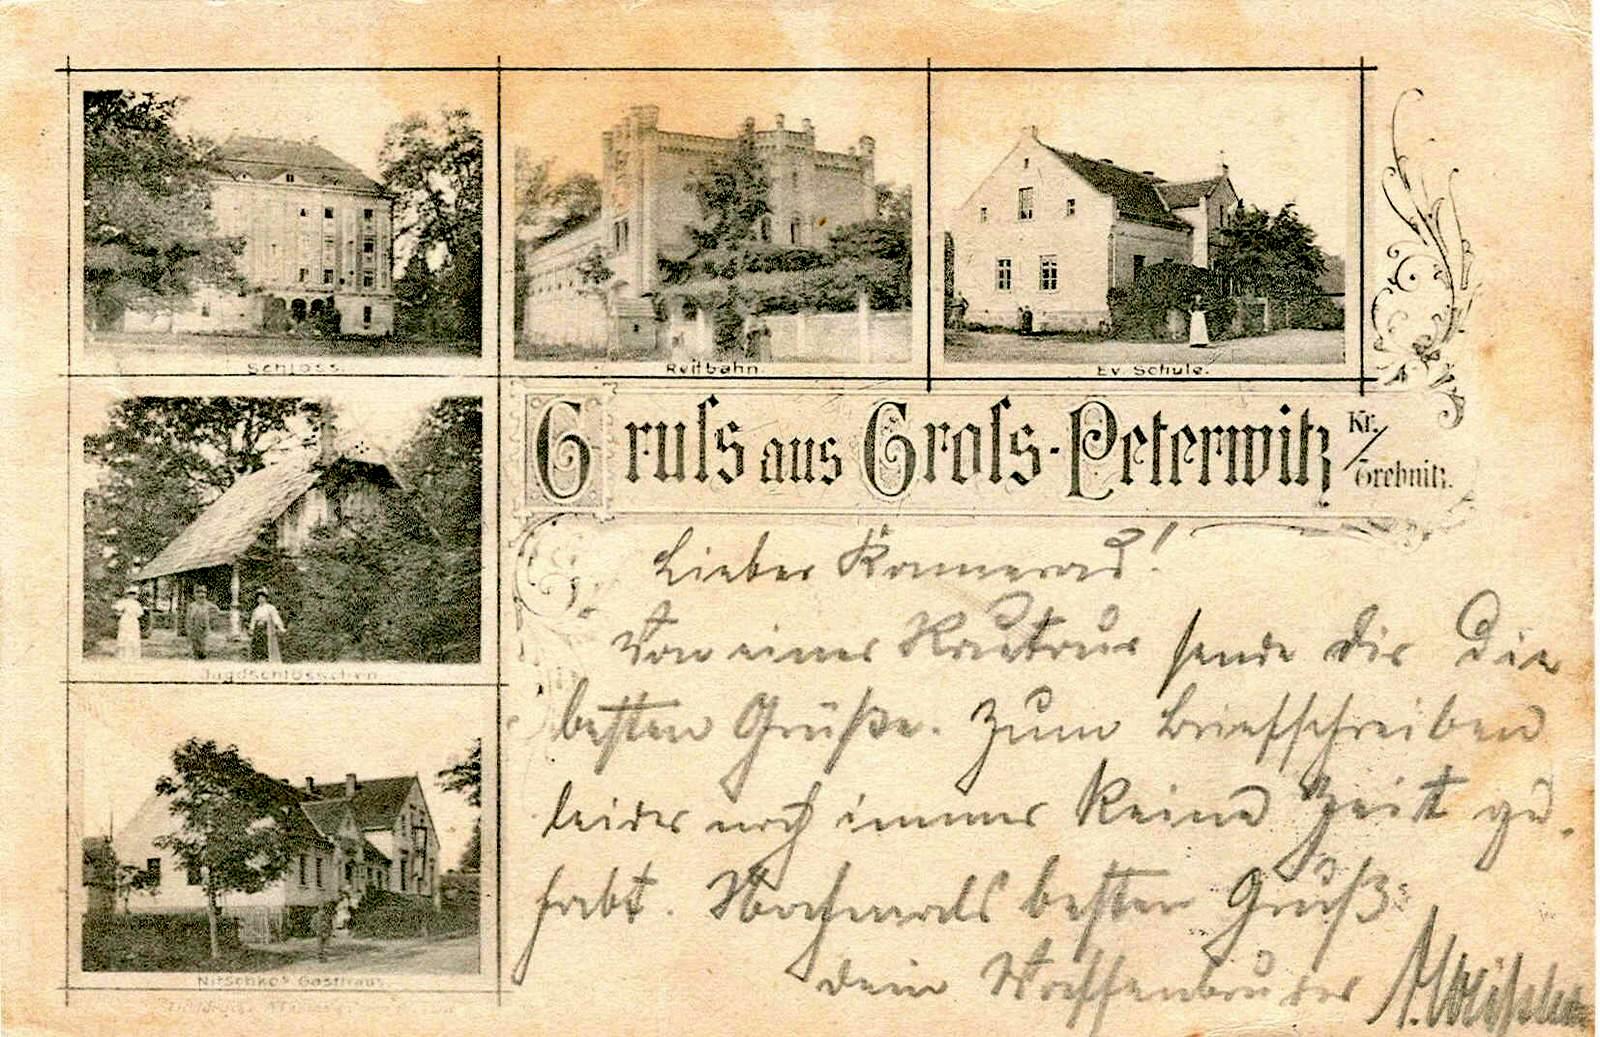 Schloss.
Reitbahn
Ev. Schule.
Gruſs aus Groſs-Peterwitz Kr./Trebnitz.
Jagdschlösschen
Nitschke's Gasthaus
Lieber Kamerad!
Von einer Radtour sende dir Die
besten Grüße. Zum Briefschreiben
leider noch immer keine Zeit ge-
habt. Nochmals besten Gruß
dein Waffenbruder